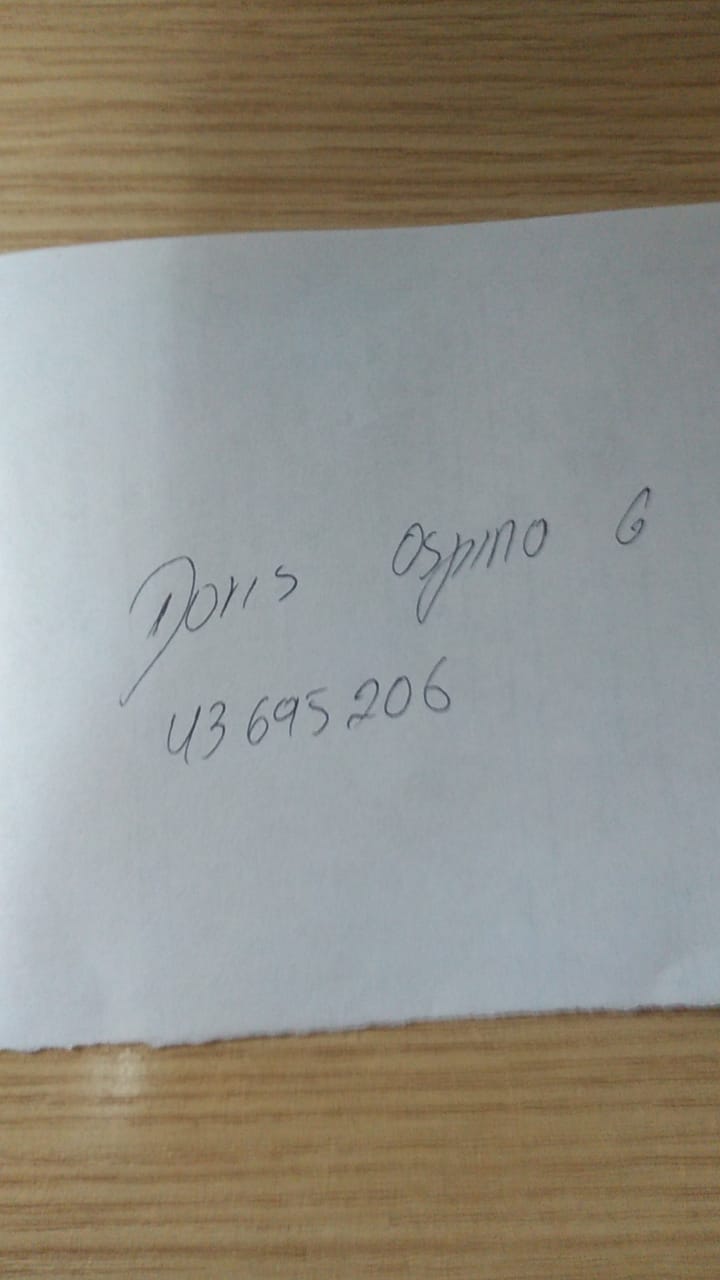 Doris Ospino G
43695206